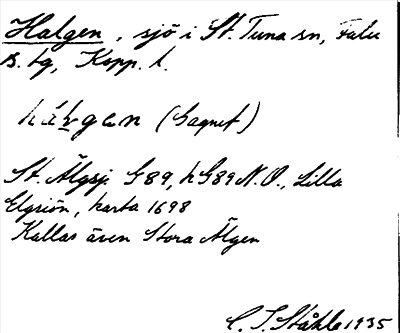 Halgen, sjö i St. Tuna sn, Falu
B. lg, Kopp. l.
hálgan (bagnet)
St. Älgsj. G89, h G89 N.O., Lilla
Elgsiön, karta 1698
Kallas även Stora Älgen
C. I. Ståhle 1935